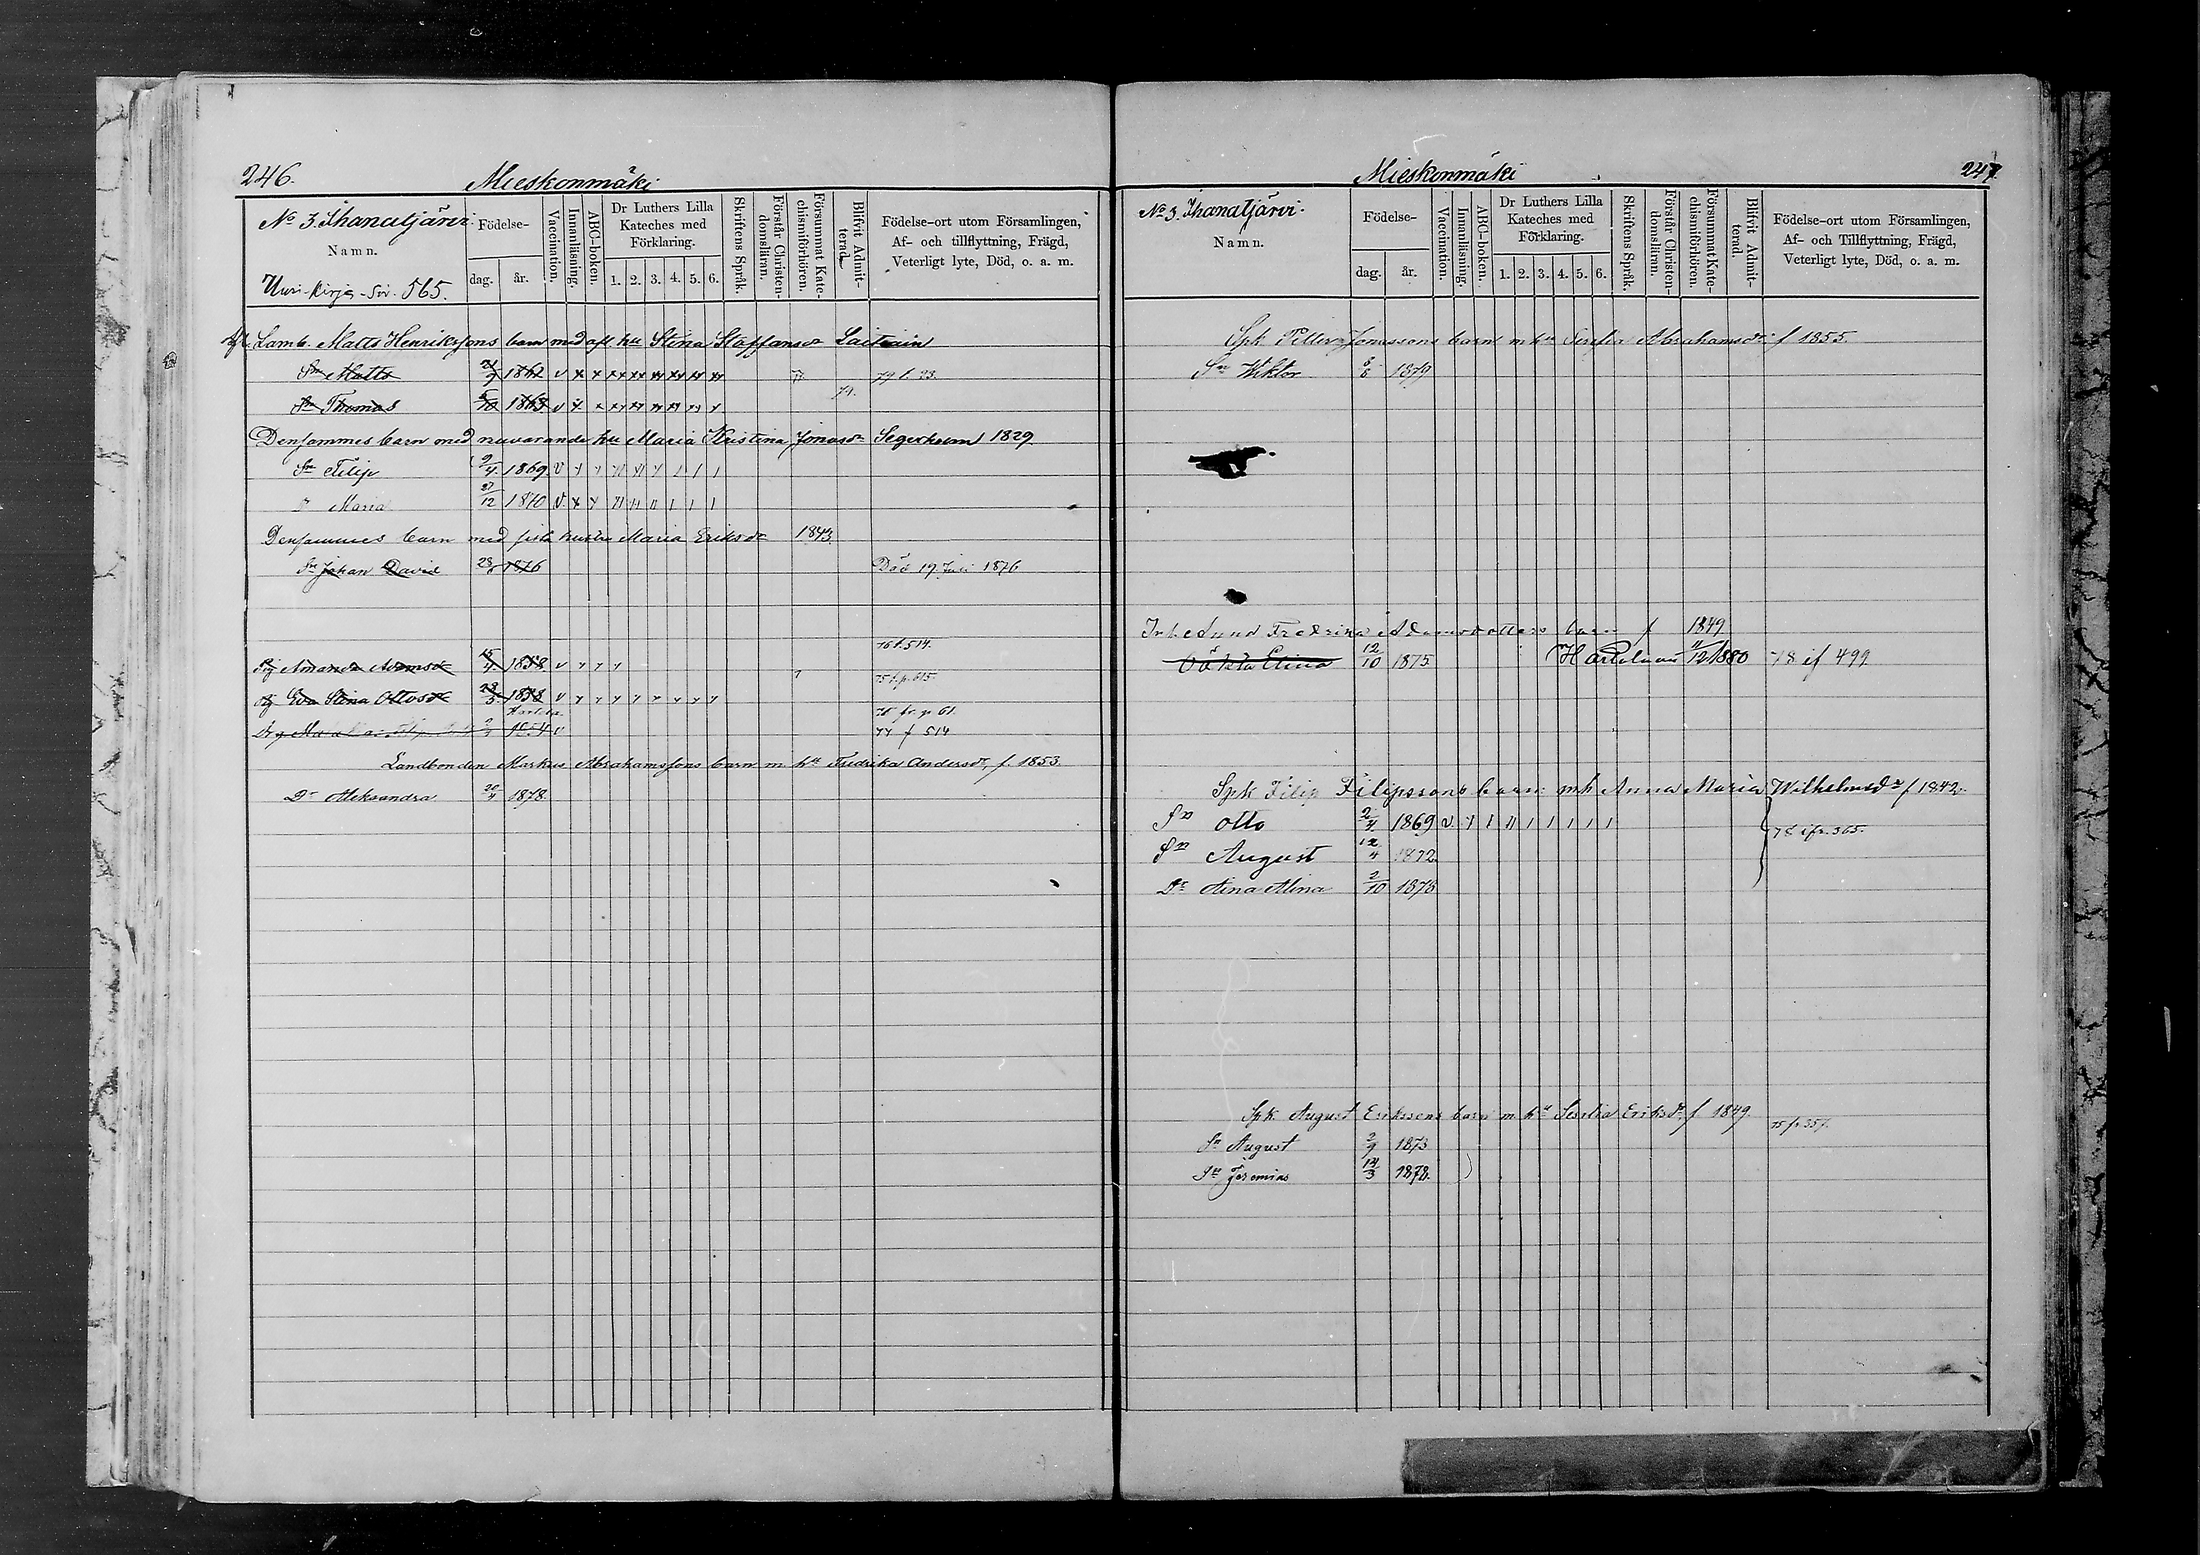 246.
Mieskonmäki
No 3. Ihanatjärvi.
Namn.
Uusi-kirja-siv. 565.
Födelse-
dag.
år.
Vaccination.
Innanläsning.
ABC-boken.
Dr Luthers Lilla Kateches med Förklaring.
1. 2. 3. 4. 5. 6.
Skriftens Språk.
Förstår Christendomsläran.
Försummat Katechismiförhören.
Blifvit Admitterad.
Födelse-ort utom Församlingen,
Af- och tillflyttning, Frägd,
Veterligt lyte, Död, o. a. m.
Lamb. Matts Henrikssons barn med afl hu Stina Staffansdr
Sn Matts 9 1862 v x x xx xx xx xx xx xx 77 79 f. 23.
Sn Thomas 10 1863 v x x xx xx xx xx xx x 79.
Densammes barn med nuvarande hu Maria Kristina Jonasdr Segerheim 1829
Sn Filip 9/4 1869 v
Dr Maria 27/12 1870 v
Densammes barn med sista hustru Maria Eriksdr 1843.
Sn Johan David 1876 Död 19 Juli 1876
76 f. 514.
Pig Amanda Adamsdr 15/4 1858 v
75 f. p. 615.
Pig Eva Stina Ottosdr 1858 v
76 fr. p. 61.
77 f 514
Landbonden Markus Abrahamssons barn m. hu Fredrika Andersdr, f. 1853.
Dr Aleksandra 20/4 1878.
Mieskonmäki
247
No 3. Ihanatjärvi.
Namn.
Födelse-
dag.
år.
Vaccination.
Innanläsning.
ABC-boken.
Dr Luthers Lilla Kateches med Förklaring.
1. 2. 3. 4. 5. 6.
Skriftens Språk.
Förstår Christendomsläran.
Försummat Katechismiförhören.
Blifvit Admitterad.
Födelse-ort utom Församlingen,
Af- och Tillflyttning, Frägd,
Veterligt lyte, Död, o. a. m.
Spk. Petter Jonassons barn m hu Serafia Abrahamsdr f 1855.
Sn Wiktor 1879
Fredrika Adamsdotters barn f 1849
Elina 12/10 1875 12 1880 78 if 499
Spk Filip Filipssons barn mh Anna Maria Wilhelmsdr f 1842.
Sn Otto 2/4 1869 v
78 ifr. 365.
Sn August 12/4 1872
Dr Aina Alina 2/10 1878
Spk August Erikssons barn m. hu Eriksdr f. 1849.
75 fr 357.
Sn August 2/9 1873
Sn Jeremias 12/3 1878.